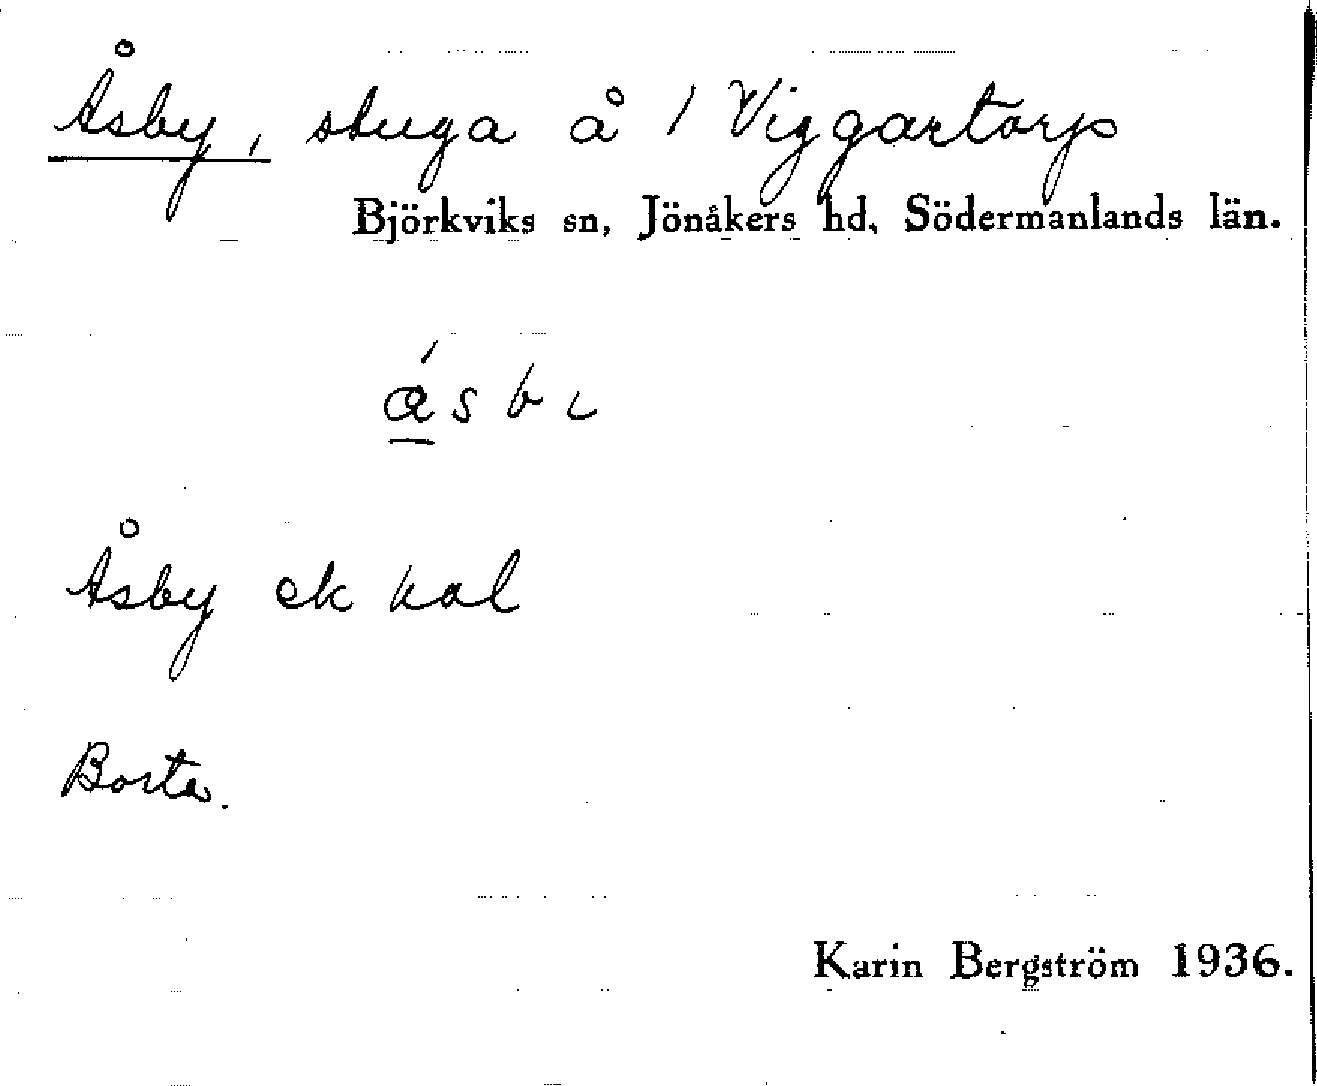 Åsby, stuga å 1 Viggartorp
Björkviks sn, Jönåkers hd, Södermanlands län.
åsbi
Åsby ek kal
Borta.
Karin Bergström 1936.